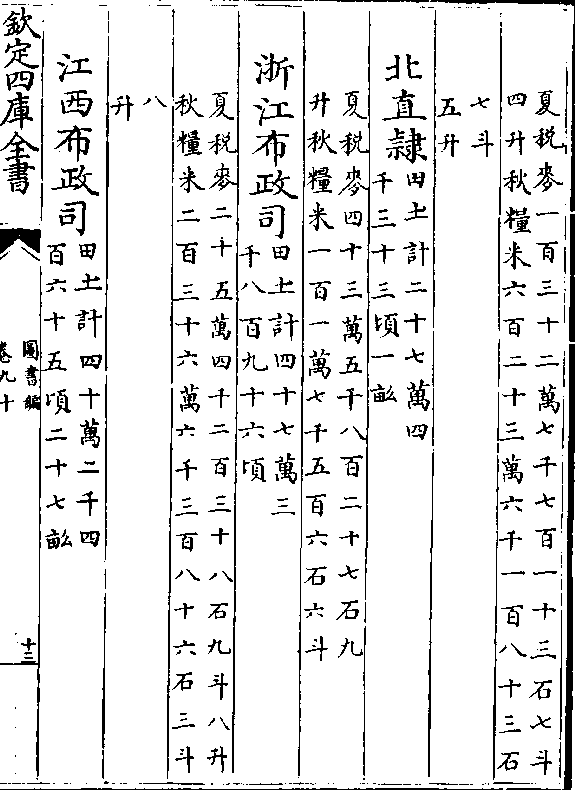 夏税麥一百三十二萬七千七百一十三石七斗
四升秋糧米六百二十三萬六千一百八十三石
七斗
五升
北直隷
田土計二十七萬四
千三十三頃一畝
夏税麥四十三萬五千八百二十七石九
升秋糧米一百一萬七千五百六石六斗
浙江布政司
田土計四十七萬三
千八百九十六頃
夏税麥二十五萬四千二百三十八石九斗八升
秋糧米二百三十六萬六千三百八十六石三斗
八
升
江西布政司
田土計四十萬二千四
百六十五頃二十七畝
欽定四庫全書
圖書編
卷九十
十三